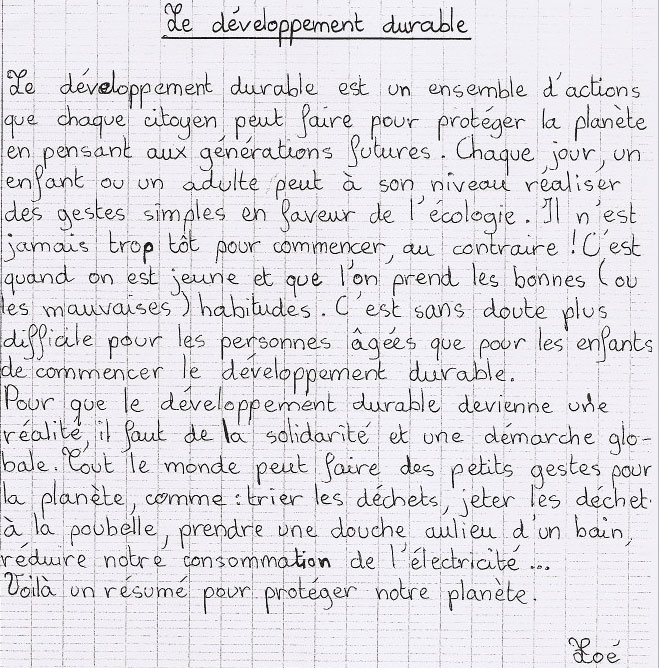 Le développement durable
Le développement durable est un ensemble d'actions
que chaque citoyen peut faire pour protéger la planète
en pensant aux générations futures. Chaque jour, un
enfant ou un adulte peut à son niveau réaliser
des gestes simples en faveur de l'écologie. Il n'est
jamais trop tôt pour commencer, au contraire ! C'est
quand on est jeune et que l'on prend les bonnes (ou
les mauvaises) habitudes. C'est sans doute plus
difficile pour les personnes âgées que pour les enfants
de commencer le développement durable.
Pour que le développement durable devienne une
réalité, il faut de la solidarité et une démarche glo-
bale. Tout le monde peut faire des petits gestes pour
la planète, comme : trier les déchets, jeter les déchet
à la poubelle, prendre une douche aulieu d'un bain,
réduire notre consommation de l'électricité...
Voilà un résumé pour protéger notre planète.
Zoé